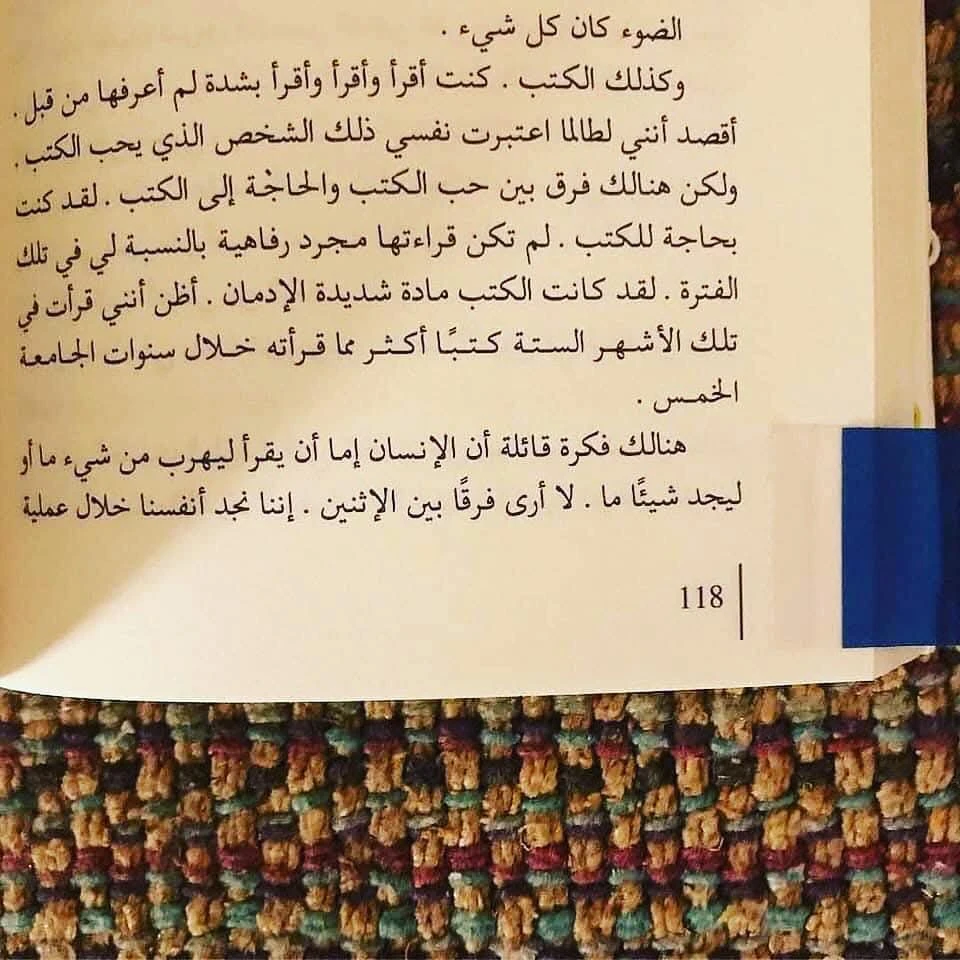 الضوء كان كل شيء .
وكذلك الكتب . كنت أقرأ وأقرأ وأقرأ بشدة لم أعرفها من قبل .
أقصد أنني لطالما اعتبرت نفسي ذلك الشخص الذي يحب الكتب .
ولكن هنالك فرق بين حب الكتب والحاجْة إلى الكتب . لقد كنت
بحاجة للكتب . لم تكن قراءتها مجرد رفاهية بالنسبة لي في تلك
الفترة . لقد كانت الكتب مادة شديدة الإدمان . أظن أنني قرأت في
تلك الأشهر الستة كتبًا أكثر مما قرأته خلال سنوات الجامعة
الخمس .
هنالك فكرة قائلة أن الإنسان إما أن يقرأ ليهرب من شيء ما أو
ليجد شيئًا ما . لا أرى فرقًا بين الإثنين . إننا نجد أنفسنا خلال عملية
118